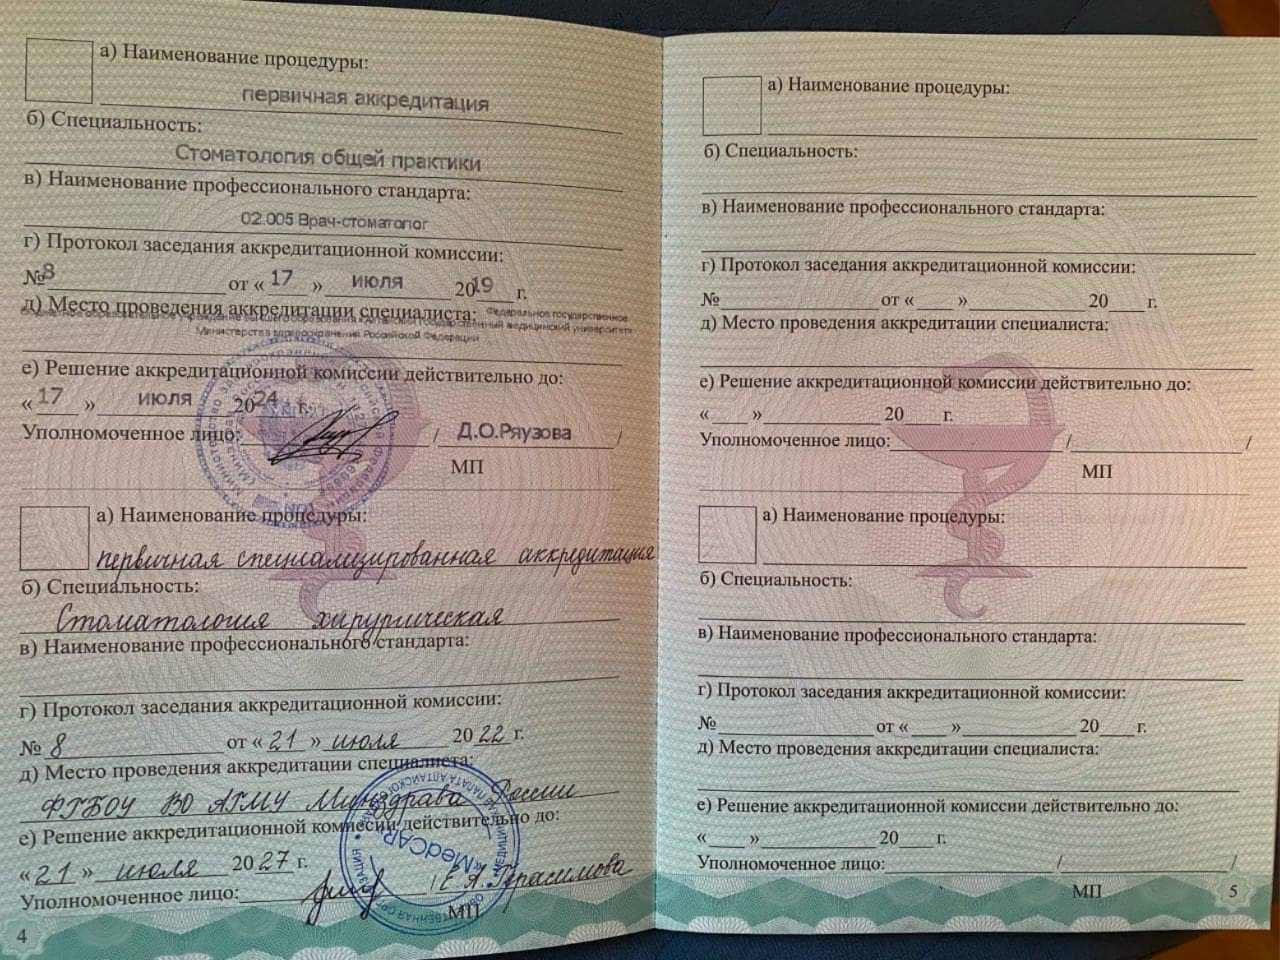 а) Наименование процедуры:
первичная аккредитация
б) Специальность:
Стоматология общей практики
в) Наименование профессионального стандарта:
02.005 Врач-стоматолог
г) Протокол заседания аккредитационной комиссии:
№8 от «17» июля 2019 г.
д) Место проведения аккредитации специалиста: Федеральное государственное
бюджетное образовательное учреждение высшего образования «Алтайский государственный медицинский университет»
Министерства здравоохранения Российской Федерации
е) Решение аккредитационной комиссии действительно до:
«17» июля 2024 г.
Уполномоченное лицо: / Д.О.Ряузова /
МП
а) Наименование процедуры:
первичная специализированная аккредитация
б) Специальность:
Стоматология хирургическая
в) Наименование профессионального стандарта:
г) Протокол заседания аккредитационной комиссии:
№ 8 от «21» июля 2022 г.
д) Место проведения аккредитации специалиста:
ФГБОУ ВО АГМУ Минздрава России
е) Решение аккредитационной комиссии действительно до:
«21» июля 2027 г.
Уполномоченное лицо: / Е.А. Герасимова
МП
«MedCAR»
4
а) Наименование процедуры:
б) Специальность:
в) Наименование профессионального стандарта:
г) Протокол заседания аккредитационной комиссии:
№ от « » 20 г.
д) Место проведения аккредитации специалиста:
е) Решение аккредитационной комиссии действительно до:
« » 20 г.
Уполномоченное лицо: / /
МП
а) Наименование процедуры:
б) Специальность:
в) Наименование профессионального стандарта:
г) Протокол заседания аккредитационной комиссии:
№ от « » 20 г.
д) Место проведения аккредитации специалиста:
е) Решение аккредитационной комиссии действительно до:
« » 20 г.
Уполномоченное лицо: / /
МП
5